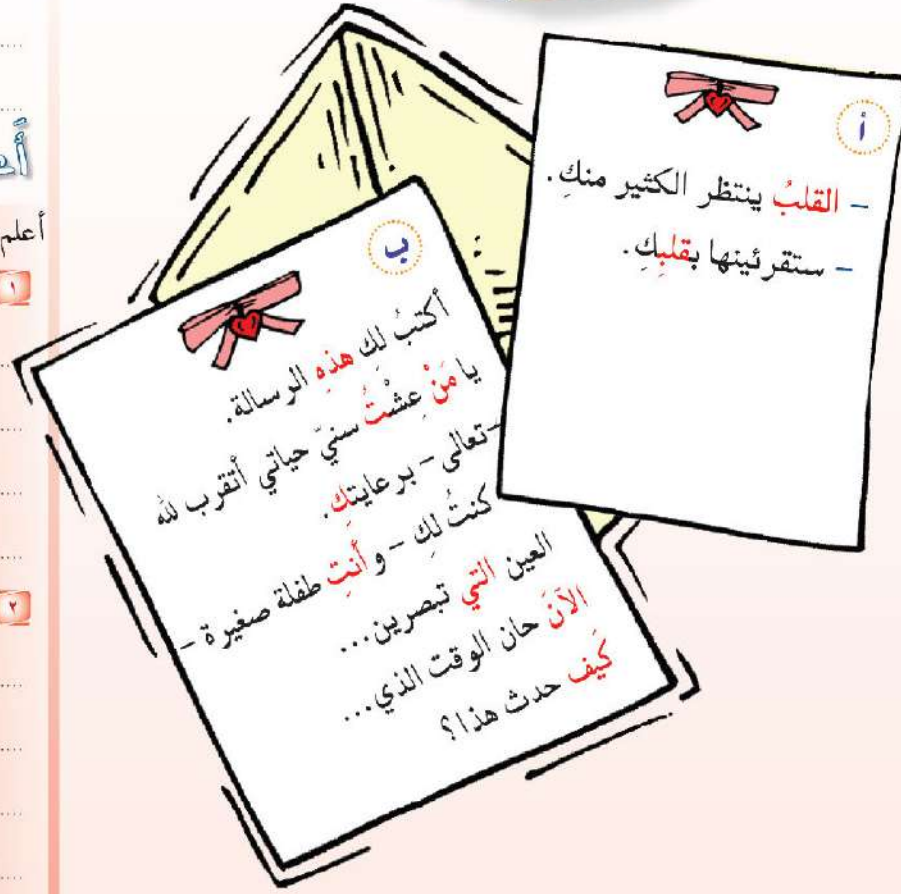 أ
- القلبُ ينتظر الكثير منكِ.
- ستقرئينها بقلبِكِ.
ب
أكتبُ لكِ هذِهِ الرسالة.
يا مَنْ عِشْتُ سنيّ حياتي أتقرب لله
-تعالى - برعايتكِ.
كنتُ لكِ - وأنتِ طفلة صغيرة -
العين التي تبصرين...
الآنَ حان الوقت الذي...
كَيفَ حدث هذا؟
أعلم
١
٢